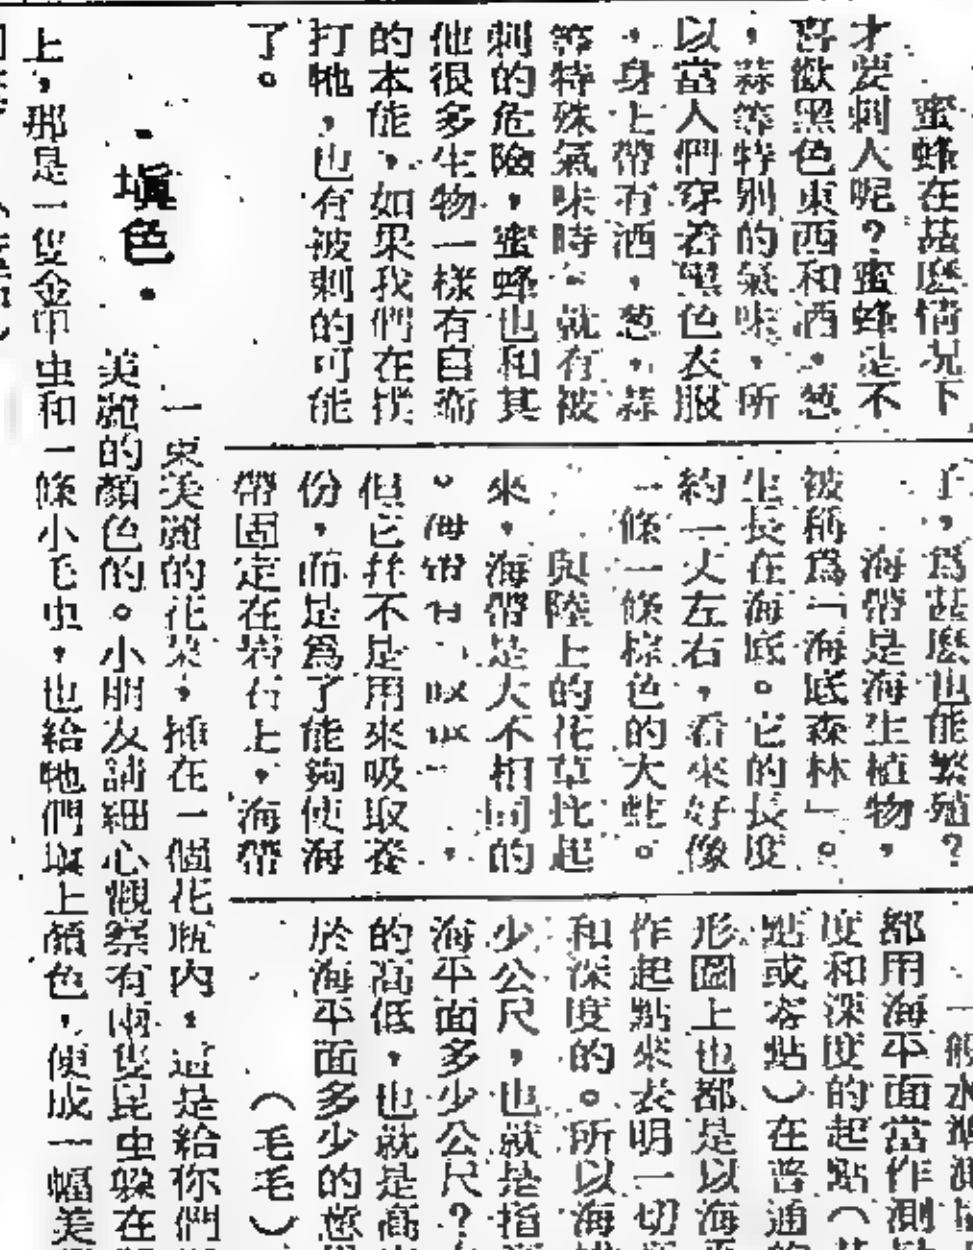 蜜蜂在甚麽情况下
才要刺人呢？蜜蜂是不
喜歡黑色東西和酒，葱
，蒜等特別的氣味，所
以當人們穿着黑色衣服
，身上帶有酒，葱，蒜
等特殊氣味時，就有被
刺的危險，蜜蜂也和其
他很多生物一樣有自衛
的本能，如果我們在撲
打牠，也有被刺的可能
了。
，爲甚麽也能繁殖？
海帶是海生植物，
被稱爲「海底森林」。
生長在海底。它的長度
約一丈左右，看來好像
一條一條棕色的大蛇。
與陸上的花草比起
來，海帶是大不相同的
。海帶
但它幷不是用來吸取養
份，而是爲了能夠使海
帶固定在岩石上，海帶
一般水準測
都用海平面當作測
度和深度的起點（
點或零點）在普通
形圖上也都是以海
作起點來表明一切
和深度的。所以海
少公尺，也就是指
海平面多少公尺？
的高低，也就是高
於海平面多少的意
（毛毛）
・塡色・
一束美麗的花朶，揷在一個花瓶內，這是給你們
美麗的顏色的。小朋友請細心觀察有兩隻昆虫躱在
上，那是一隻金甲虫和一條小毛虫，也給牠們塡上顏色，便成一幅美